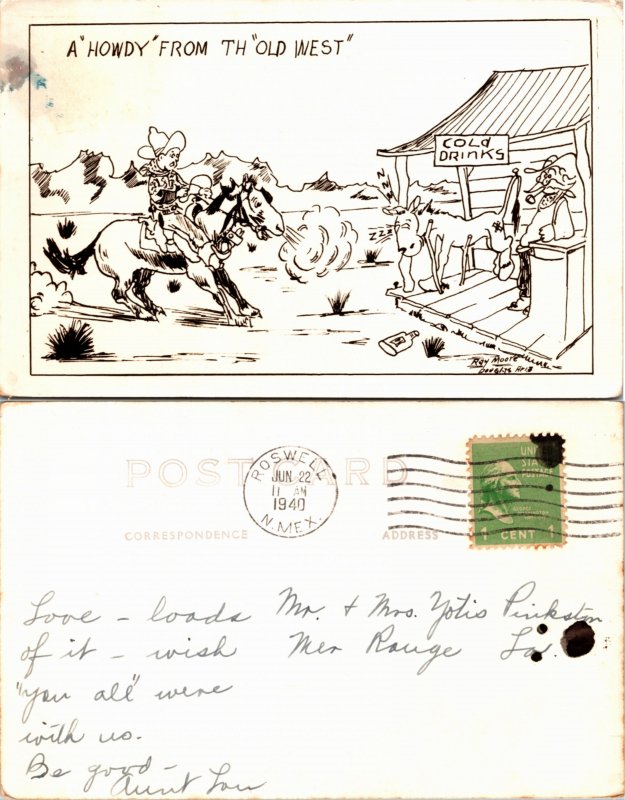 A "HOWDY" FROM TH "OLD WEST"
COLD
DRINKS
ZZZ
ZZZ
Ray Moore
Douglas Ariz
POST CARD
ROSWELL
JUN 22
11 AM
1940
N. MEX.
UNITED
STATES
POSTAGE
GEORGE
WASHINGTON
1 CENT 1
CORRESPONDENCE
ADDRESS
Love - loads
of it - wish
"you all" were
with us.
Be good -
Aunt Lou
Mr. & Mrs. Yotis Pinkston
Mer Rouge La.